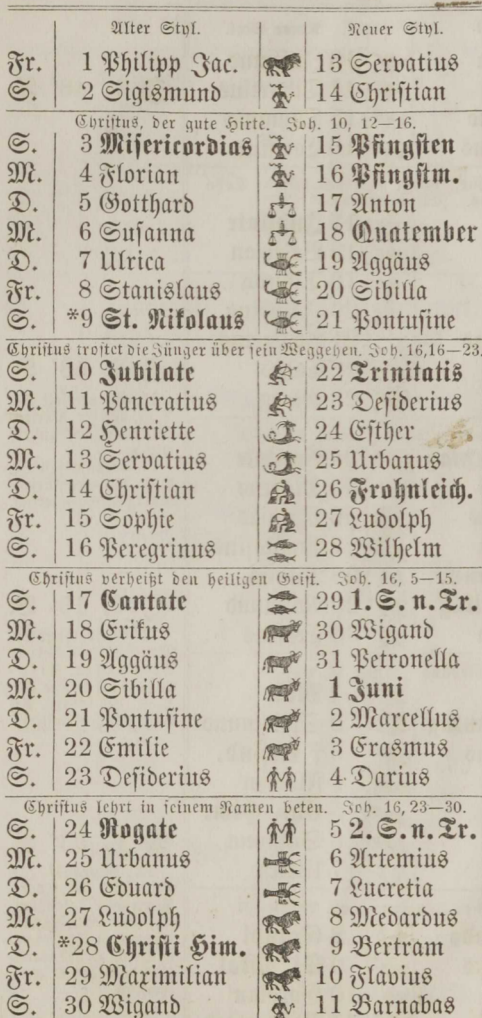 Alter Styl. Neuer Styl.
Fr. 1 Philipp Jac. 13 Servatius
S. 2 Sigismund 14 Christian
Christus, der gute Hirte. Joh. 10, 12—16.
S. 3 Misericordias 15 Pfingsten
M. 4 Florian 16 Pfingstm.
D. 5 Gotthard 17 Anton
M. 6 Susanna 18 Quatember
D. 7 Ulrica 19 Aggäus
Fr. 8 Stanislaus 20 Sibilla
S. *9 St. Nikolaus 21 Pontusine
Christus trostet die Jünger über sein Weggehen. Joh. 16,16—23.
S. 10 Jubilate 22 Trinitatis
M. 11 Pancratius 23 Desiderius
D. 12 Henriette 24 Esther
M. 13 Servatius 25 Urbanus
D. 14 Christian 26 Frohnleich.
Fr. 15 Sophie 27 Ludolph
S. 16 Peregrinus 28 Wilhelm
Christus verheißt den heiligen Geist. Joh. 16, 5—15.
S. 17 Cantate 29 1. S. n. Tr.
M. 18 Erikus 30 Wigand
D. 19 Aggäus 31 Petronella
M. 20 Sibilla 1 Juni
D. 21 Pontusine 2 Marcellus
Fr. 22 Emilie 3 Erasmus
S. 23 Desiderius 4 Darius
Christus lehrt in seinem Namen beten. Joh. 16, 23—30.
S. 24 Rogate 5 2. S. n. Tr.
M. 25 Urbanus 6 Artemius
D. 26 Eduard 7 Lucretia
M. 27 Ludolph 8 Medardus
D. *28 Christi Him. 9 Bertram
Fr. 29 Maximilian 10 Flavius
S. 30 Wigand 11 Barnabas